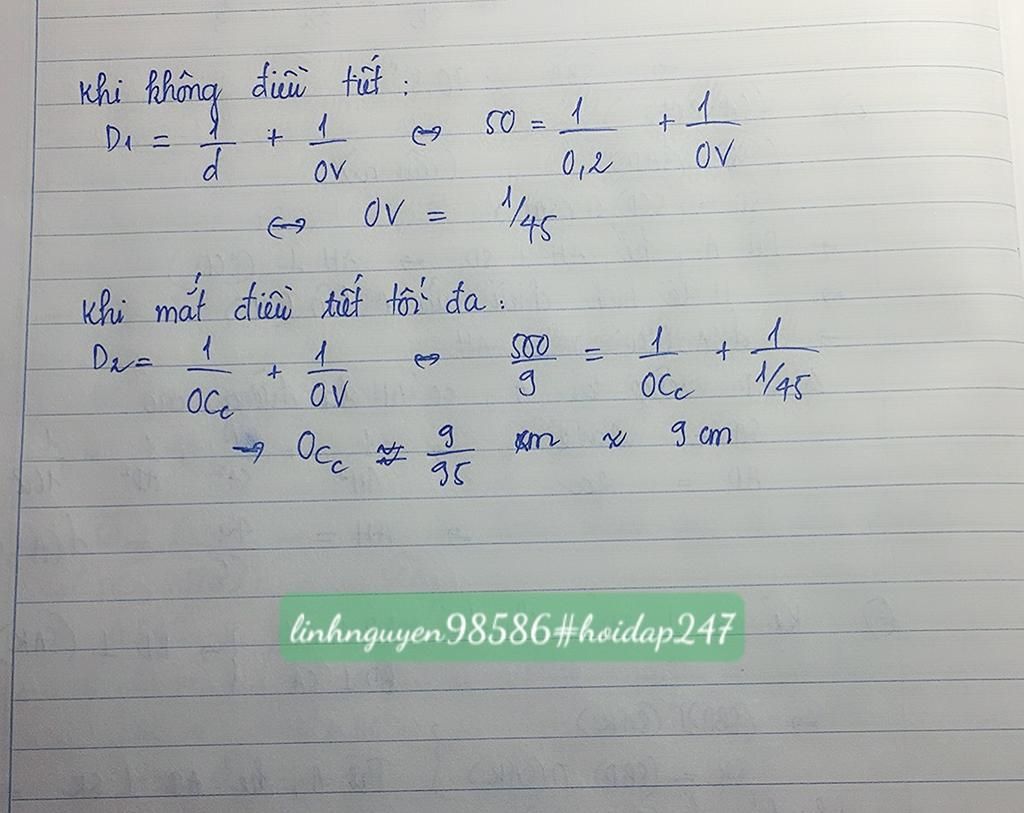 Khi không điều tiết :
D1 = 1/d + 1/OV ⇔ 50 = 1/0,2 + 1/OV
⇔ OV = 1/45
Khi mắt điều tiết tối đa :
D2 = 1/OCc + 1/OV ⇔ 500/9 = 1/OCc + 1/1/45
→ OCc ≈ 9/95 m ≈ 9 cm
linhnguyen98586#hoidap247